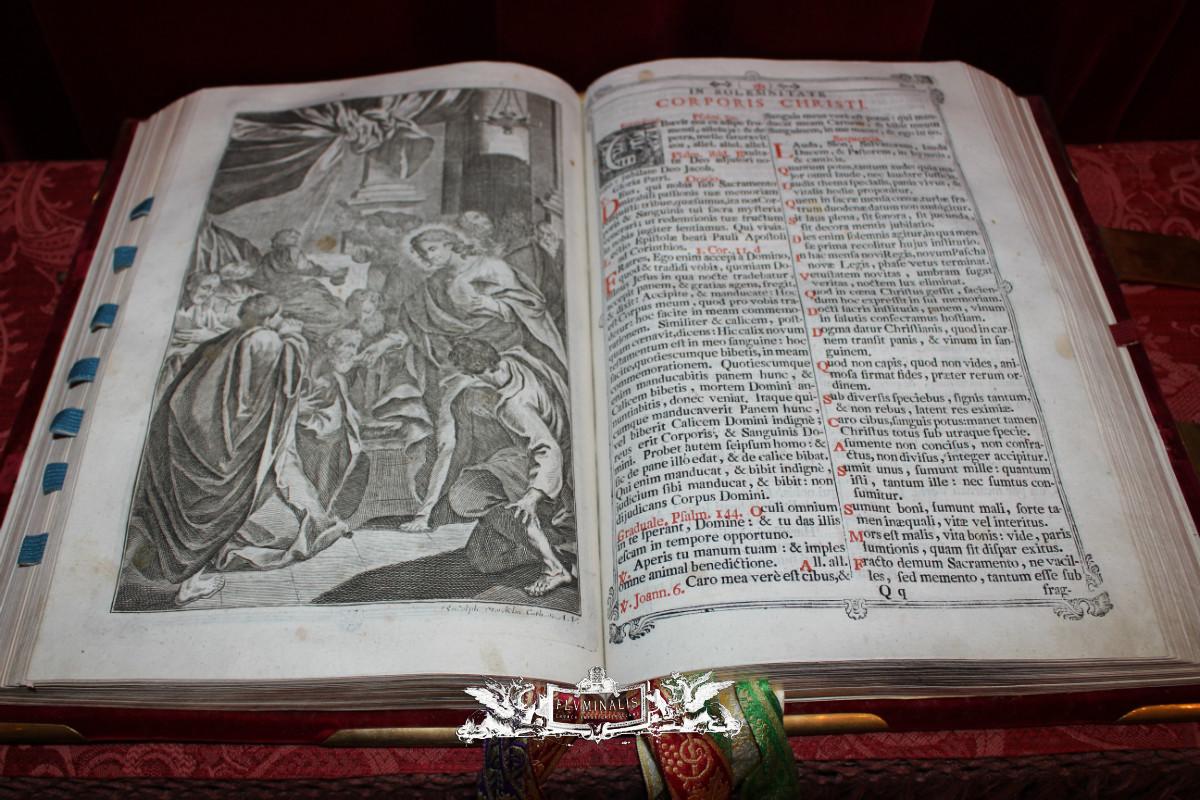 IN SOLEMNITATE
CORPORIS CHRISTI.
Psalm. 80.
Cibavit eos ex adipe fru-
menti, alleluja: & de
petra, melle saturavit
eos, allel. allel. allel.
Psalm. ibid. Exulta-
te Deo adjutori no-
jubilate Deo Jacob.
Gloria Patri.
Oratio.
Deus, qui nobis sub Sacramento
mirabili passionis tuæ memoriam
tribue, quæsumus, ita nos Cor-
poris & Sanguinis tui sacra mysteria
venerari; ut redemtionis tuæ fructum
in nobis jugiter sentiamus. Qui vivis.
Lectio Epistolæ beati Pauli Apostoli
ad Corinthios. 1. Cor. 11. d
FRatres, Ego enim accepi à Domino,
quod & tradidi vobis, quoniam Do-
minus Jesus in qua nocte tradebatur,
accepit panem, & gratias agens, fregit,
& dixit: Accipite, & manducate: Hoc
est Corpus meum, quod pro vobis tra-
detur: hoc facite in meam commemo-
rationem. Similiter & calicem, post-
quam cœnavit, dicens: Hic calix novum
testamentum est in meo sanguine: hoc
facite, quotiescumque bibetis, in meam
commemorationem. Quotiescumque
enim manducabitis panem hunc, &
Calicem bibetis, mortem Domini an-
nuntiabitis, donec veniat. Itaque qui-
cumque manducaverit Panem hunc,
vel biberit Calicem Domini indignè;
reus erit Corporis, & Sanguinis Do-
mini. Probet autem seipsum homo: &
sic de pane illo edat, & de calice bibat.
Qui enim manducat, & bibit indignè,
judicium sibi manducat, & bibit: non
dijudicans Corpus Domini.
Graduale. Psalm. 144. Oculi omnium
in te sperant, Domine: & tu das illis
escam in tempore opportuno.
℣. Aperis tu manum tuam: & imples
omne animal benedictione. All. all.
℣. Joann. 6. Caro mea verè est cibus, &
Sanguis meus verè est potus: qui man-
ducat meam Carnem, & bibit meum
Sanguinem, in me manet, & ego in eo.
Sequentia.
LAuda, Sion, Salvatorem, lauda
Ducem, & Pastorem, in hymnis,
& canticis.
Quantum potes, tantum aude: quia ma-
jor omni laude, nec laudare sufficis.
Laudis thema specialis, panis vivus, &
vitalis hodie proponitur.
Quem in sacræ mensa cœnæ, turbæ fra-
trum duodenæ datum non ambigitur.
Sit laus plena, sit sonora, sit jucunda,
sit decora mentis jubilatio.
Dies enim solemnis agitur, in qua men-
sæ prima recolitur hujus institutio.
In hac mensa novi Regis, novum Pascha
novæ Legis, phase vetus terminat.
Vetustatem novitas, umbram fugat
veritas, noctem lux eliminat.
Quod in cœna Christus gessit, facien-
dum hoc expressit in sui memoriam.
Docti sacris institutis, panem, vinum
in salutis consecramus hostiam.
Dogma datur Christianis, quod in car-
nem transit panis, & vinum in san-
guinem.
Quod non capis, quod non vides, ani-
mosa firmat fides, præter rerum or-
dinem.
Sub diversis speciebus, signis tantum,
& non rebus, latent res eximiæ.
Caro cibus, sanguis potus: manet tamen
Christus totus sub utraque specie.
A sumente non concisus, non confra-
ctus, non divisus, integer accipitur.
Sumit unus, sumunt mille: quantum
isti, tantum ille: nec sumtus con-
sumitur.
Sumunt boni, sumunt mali, sorte ta-
men inæquali, vitæ vel interitus.
Mors est malis, vita bonis: vide, paris
sumtionis, quam sit dispar exitus.
Fracto demum Sacramento, ne vacil-
les, sed memento, tantum esse sub
Q q
frag-
FLVMINALIS